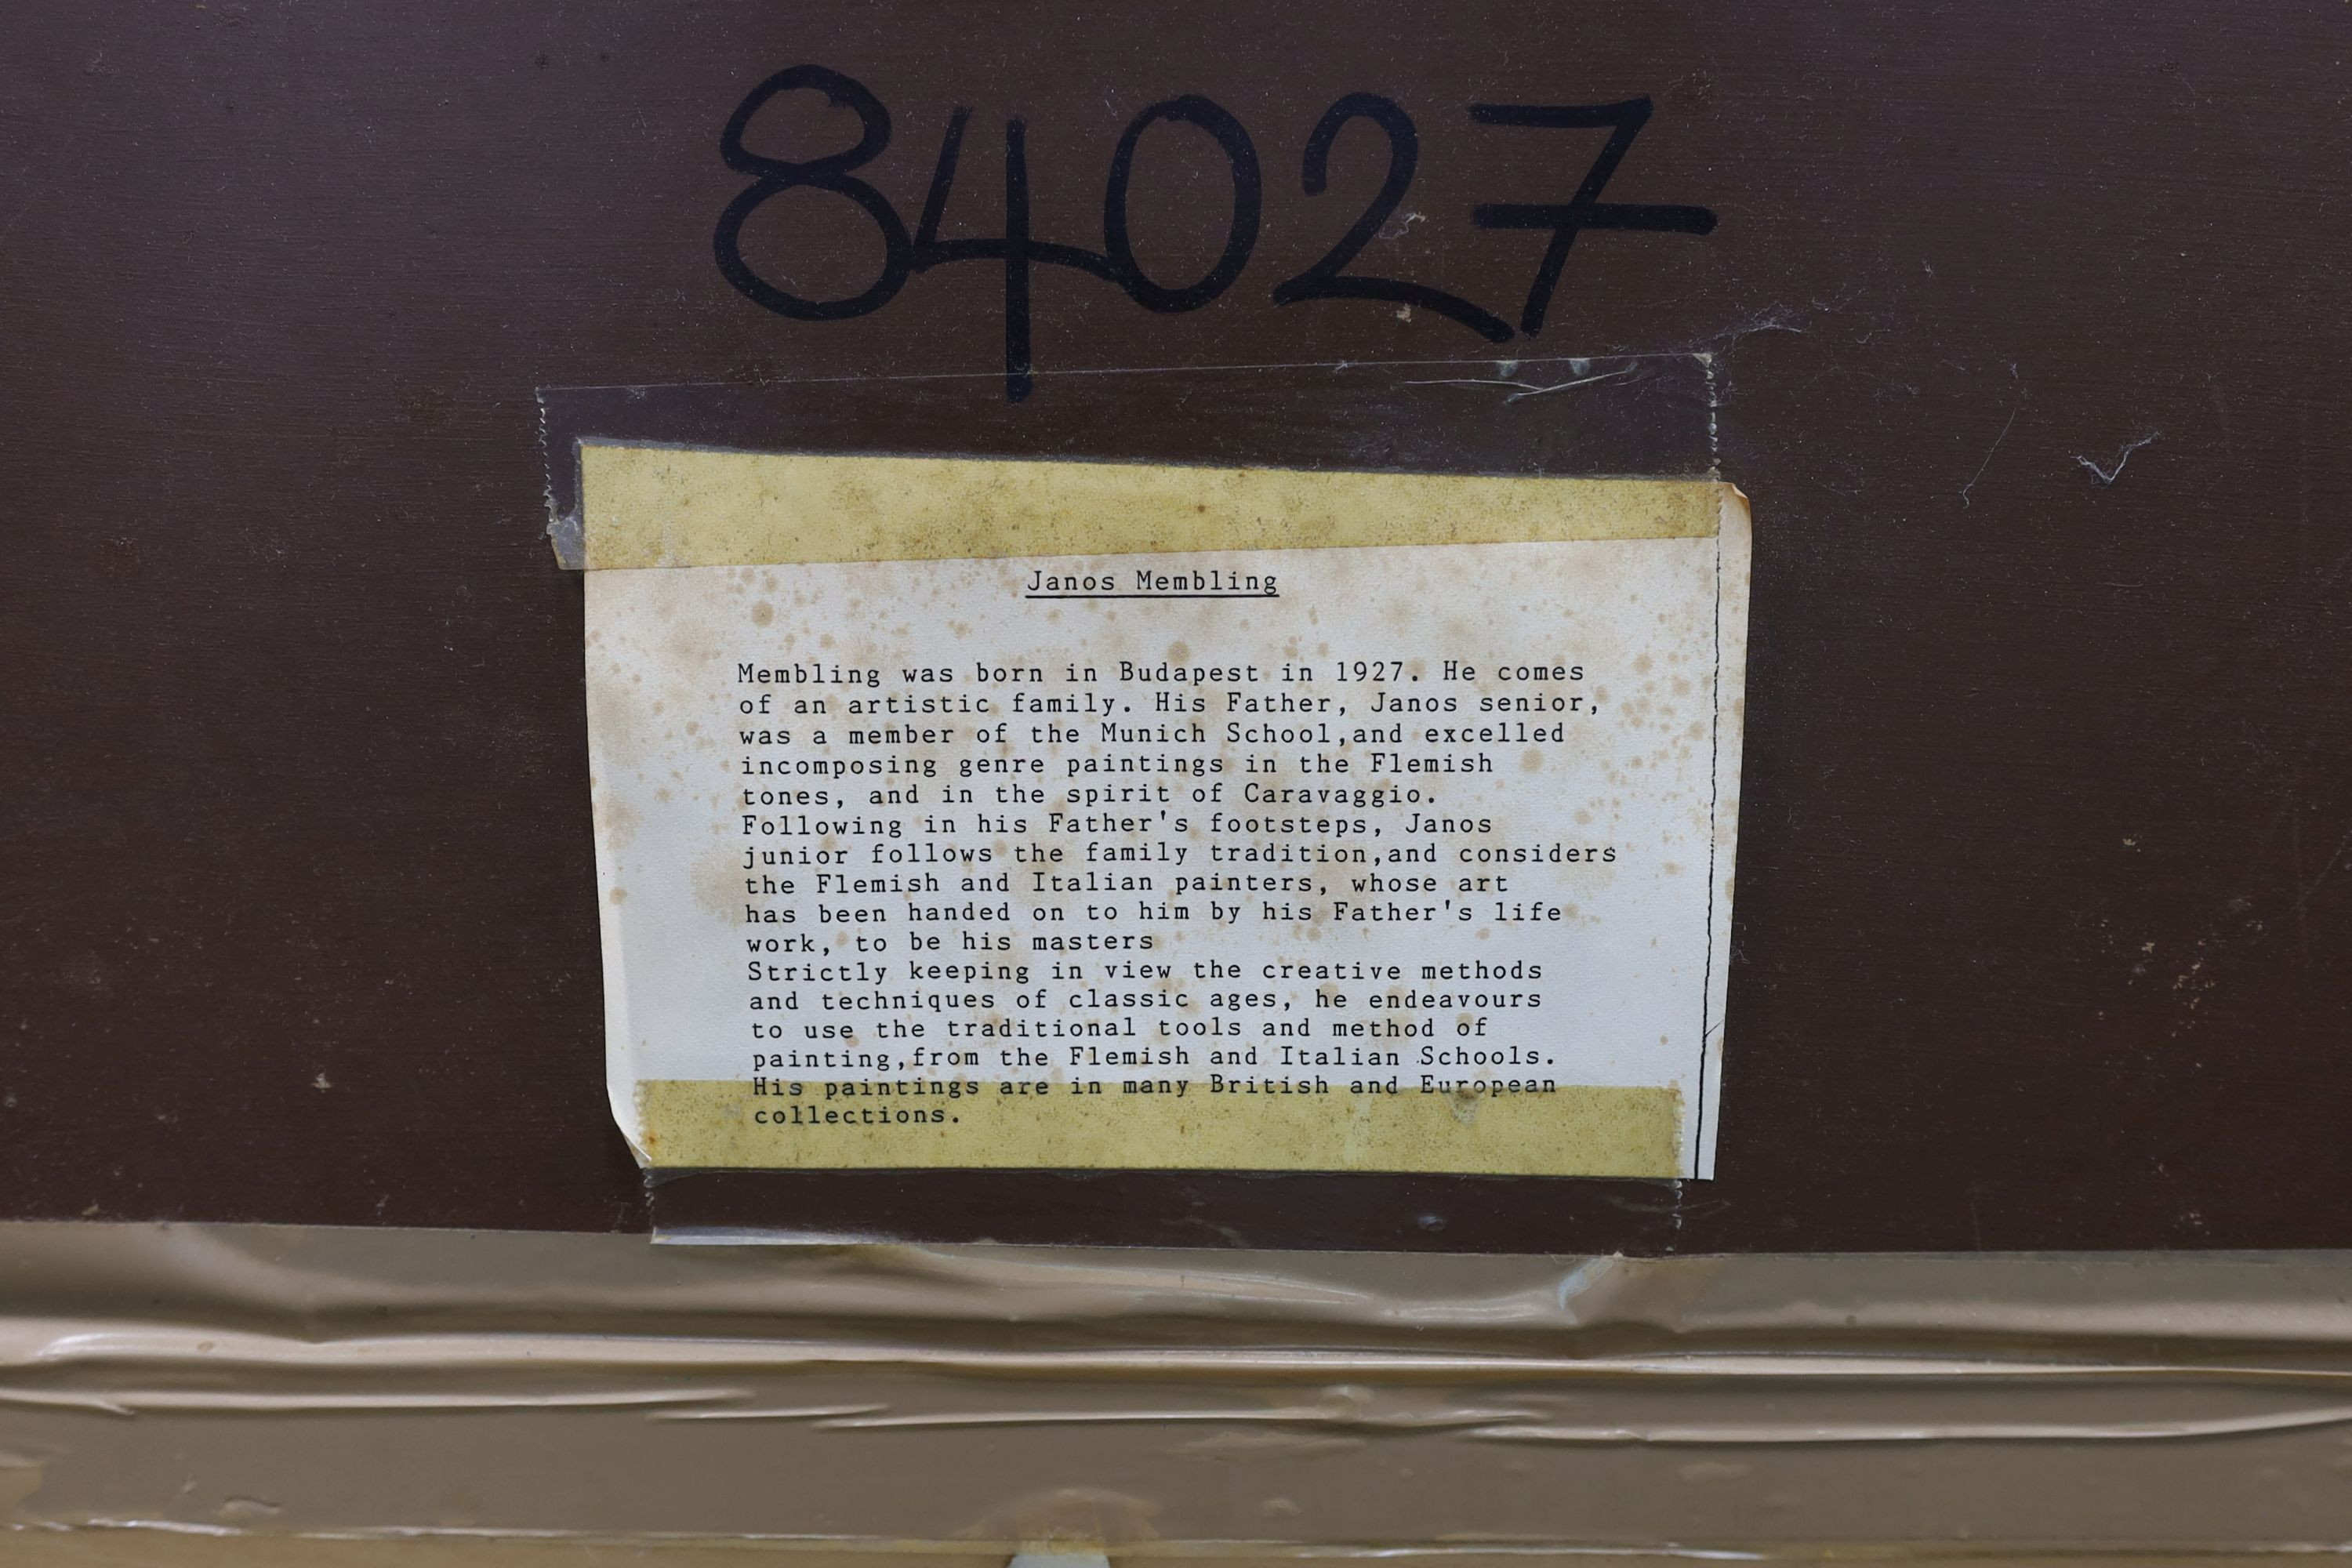 84027
Janos Membling
Membling was born in Budapest in 1927. He comes
of an artistic family. His Father, Janos senior,
was a member of the Munich School,and excelled
incomposing genre paintings in the Flemish
tones, and in the spirit of Caravaggio.
Following in his Father's footsteps, Janos
junior follows the family tradition,and considers
the Flemish and Italian painters, whose art
has been handed on to him by his Father's life
work, to be his masters
Strictly keeping in view the creative methods
and techniques of classic ages, he endeavours
to use the traditional tools and method of
painting,from the Flemish and Italian Schools.
His paintings are in many British and European
collections.